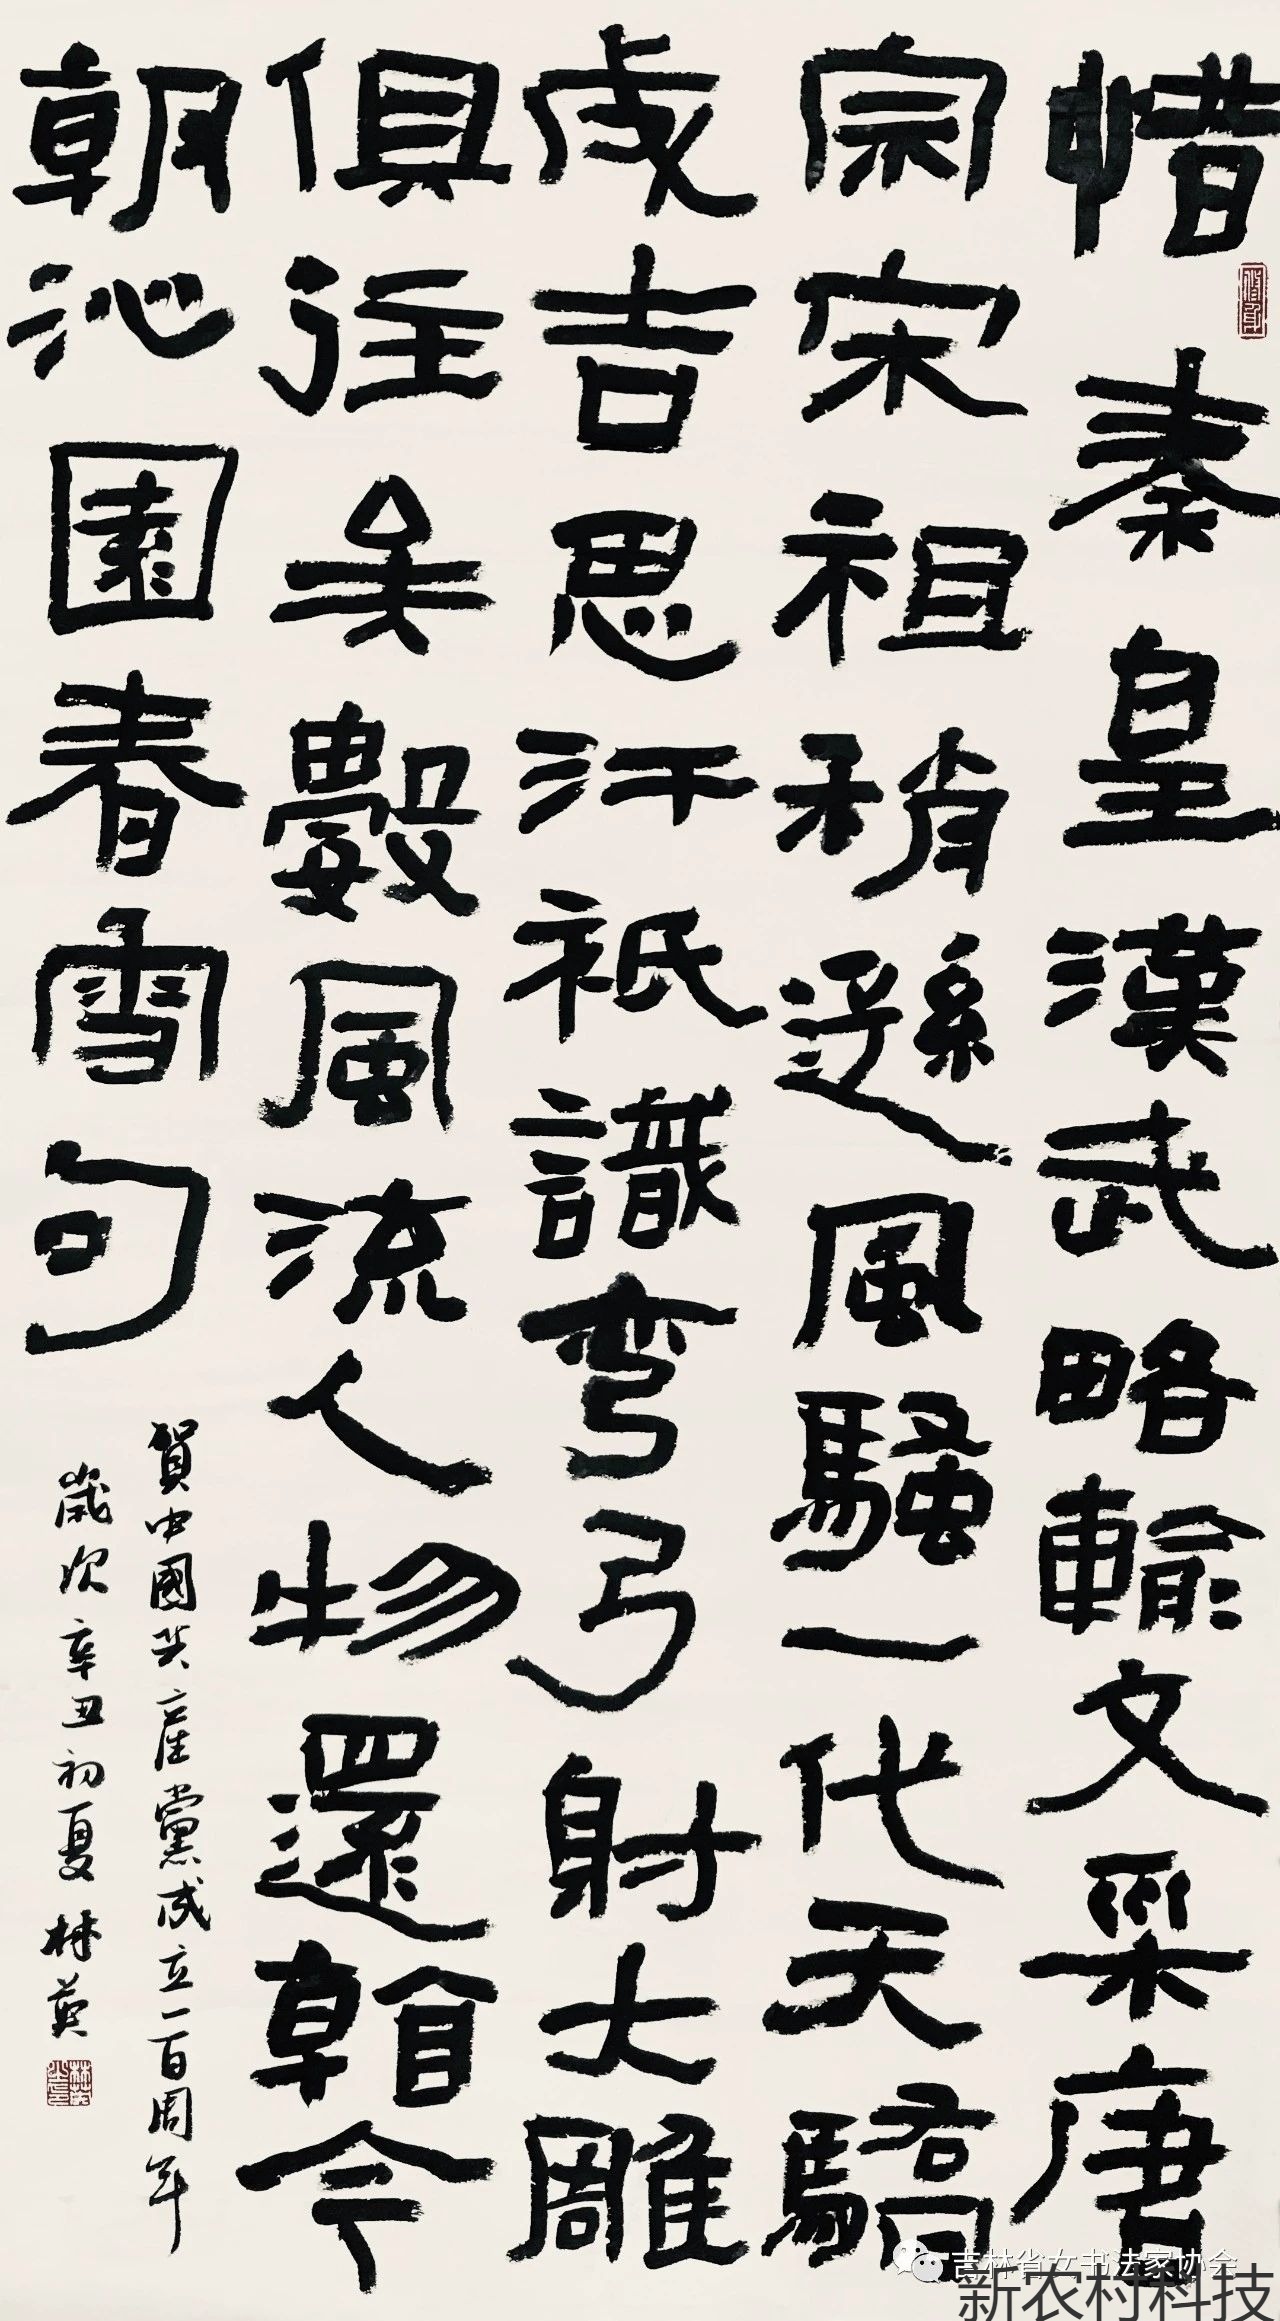 惜秦皇漢武略輸文采唐
宗宋祖稍遜風騷一代天驕
成吉思汗祇識弯弓射大雕
俱往矣數風流人物還看今
朝沁園春雪句
賀中國共產黨成立一百周年
歲次辛丑初夏林英
吉林省女书法家协会
新农村科技